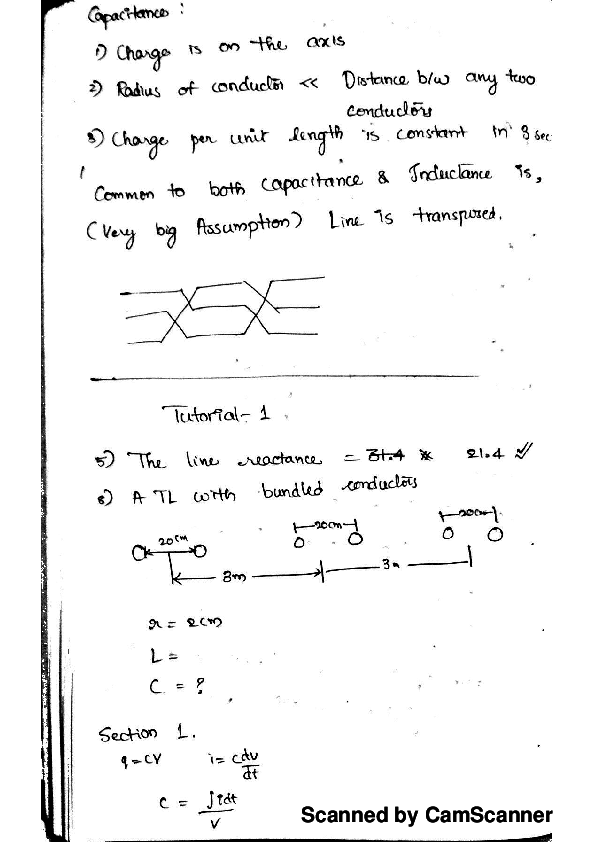 Capacitance :
1) Charge is on the axis
2) Radius of conductor << Distance b/w any two
conductors
3) Charge per unit length is constant in 3 sec
Common to both capacitance & Inductance is,
(Very big Assumption) Line is transposed.
Tutorial - 1
5) The line reactance = 31.4 21.4 ✓
6) A TL with bundled conductors
20cm 20cm 20cm
3m 3m
r = 2cm
L =
C = ?
Section 1.
q = CV i = c dv/dt
C = ∫idt/V
Scanned by CamScanner